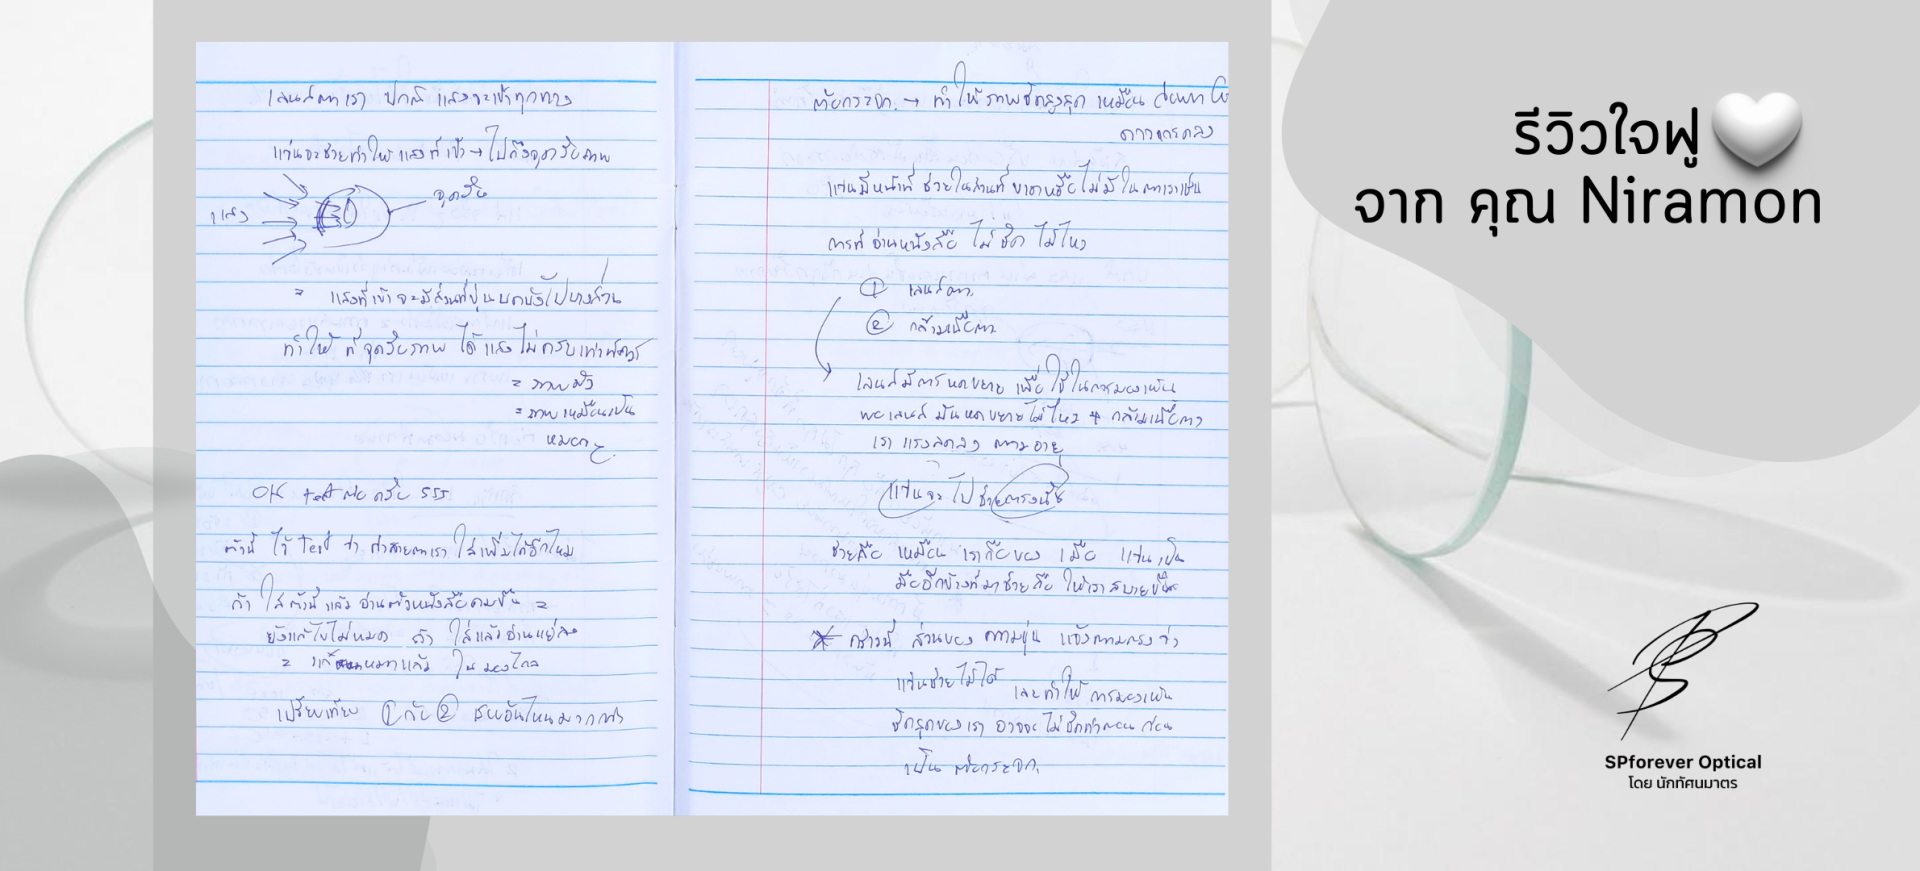 เลนส์ตาเรา ปกติ แสงจะเข้าทุกทาง
แว่นจะช่วยทำให้ แสงที่เข้า → ไปถึงจุดรับภาพ
แสง
จุดรับ
= แสงที่เข้า จะมีส่วนที่ขุ่นบดบังไปบางส่วน
ทำให้ ที่จุดรับภาพ ได้แสงไม่ครบเท่าที่ควร
= ภาพมัว
= ภาพเหมือนเป็น
หมอกๆ
OK test ต่อ ครับ 555
ตัวนี้ ไว้ Test ว่า ค่าสายตาเรา ใส่เพิ่มได้อีกไหม
ถ้า ใส่ตัวนี้แล้ว อ่านตัวหนังสือคมขึ้น =
ยังแก้ไขไม่หมด ถ้า ใส่แล้วอ่านแย่ลง
= แก้หมดแล้ว ในมองไกล
เปรียบเทียบ ① กับ ② ชอบอันไหนมากกว่า
ต้อกระจก → ทำให้ภาพชัดสูงสุด เหมือน
ดาวตกลง
แว่นมีหน้าที่ ช่วยในส่วนที่ขาดหรือไม่มี ในตาเราเช่น
การที่ อ่านหนังสือ ไม่ชัด ไม่ไหว
① เลนส์ตา
② กล้ามเนื้อตา
เลนส์มีการหดขยาย เพื่อใช้ในการมองเห็น
พอเลนส์ มันหดขยายไม่ไหว + กล้ามเนื้อตา
เรา แรงลดลง ตามอายุ
แว่นจะ ไปช่วยตรงนี้
ช่วยคือ เหมือน เราถือของ 1 มือ แว่นเป็น
มืออีกข้างที่มาช่วยถือ ให้เราสบายขึ้น
* คราวนี้ ส่วนของ ความขุ่น แจ้งตามตรงว่า
แว่นช่วยไม่ได้ และทำให้ การมองเห็น
ชัดสุดของเรา อาจจะไม่ชัดเท่าตอน ก่อน
เป็น ต้อกระจก.
รีวิวใจฟู
จาก คุณ Niramon
SPforever Optical
โดย นักทัศนมาตร